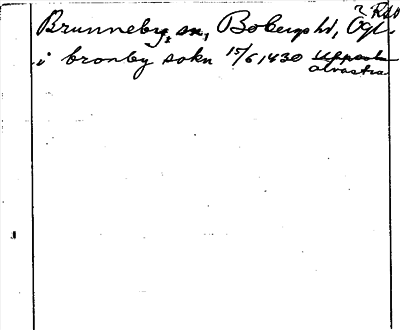 Brunneby, sn, Bobergs hd, Ögl.
i bronby sokn 15/6 1430
alvastra